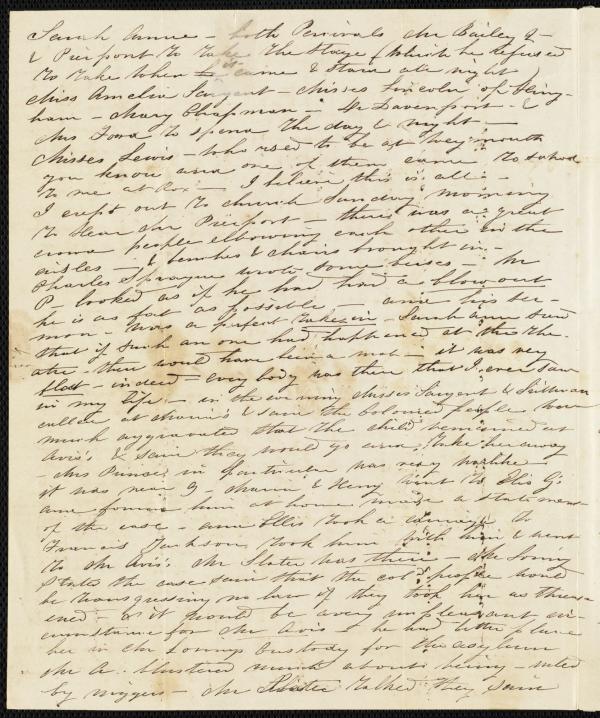 Sarah Anne - both Percivals Mr Bailey &
& Pierpont to take the stage (which he refused
to take when he came & staid all night)
Miss Amelia Sargent - Misses Lincoln of Hing-
ham - Mary Chapman - Mr Davenport - &
Mrs Ford to spend the day & night -
Misses Lewis - who used to be at Weymouth
you know and one of them came to school
to me at Rox - I believe this is all -
I crept out to church Sunday morning
to hear Mr Pierpont - there was a great
crowd people elbowing each other in the
aisles - & benches & chairs brought in -
Charles Sprague wrote some verses - Mr
P - looked as if he had had a blow out
he is as fat as possible - and his ser-
mon - was a perfect take in - Sarah Ann said
that if such an one had happened at the the-
atre - there would have been a mob - it was very
flat - indeed - every body was there that I ever saw
in my life - in the evening Misses Sargent & Sullivan
called at Maria's & said the coloured people were
much aggravated that the child remained at
Avis's & said they would go and take her away
- Mrs in particular was very warlike
it was near 9 - Maria & Henry went to Ellis G:
and found him at home made a statement
of the case - and Ellis took a carriage to
Francis Jackson took him with him & went
to Mr Avis's. Mr Slater was there - Mr Loring
stated the case said that the cold people would
be transgressing no law if they took her as threat-
ened - & it would be a very unpleasant cir-
cumstance for Mr Avis - he had better place
her in Mr Lorings custody for the asylum
Mr A. blustered much about being - ruled
by niggers - Mr Slater talked they said